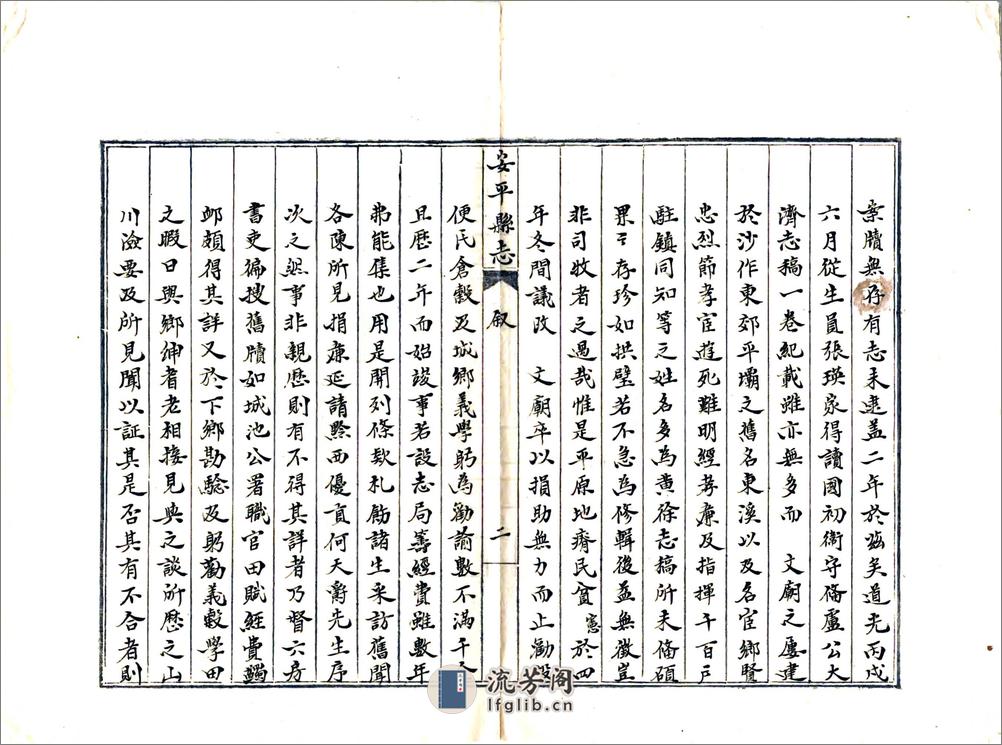 案牘無存有志未逮蓋二年於茲矣道光丙戌
六月從生員張瑛家得讀國初衛守備盧公大
濟志稿一卷紀載雖亦無多而 文廟之屢建
於沙作東郊平壩之舊名東溪以及名宦鄉賢
忠烈節孝宦蹟死難明經孝廉及指揮千百戶
駐鎮同知等之姓名多為黃徐志稿所未備碩
果〻存珍如拱璧若不急為修輯後益無徵豈
非司牧者之過哉惟是平原地瘠民貧 憲於四
年冬間議改 文廟卒以捐助無力而止勸設
安平縣志 叙 二
便民倉穀及城鄉義學躬為勸諭數不滿千
且歷二年而始竣事若設志局籌經費雖數年
弗能集也用是開列條款札飭諸生采訪舊聞
各陳所見捐廉延請黔西優貢何天爵先生序
次之然事非親歷則有不得其詳者乃督六房
書吏徧搜舊牘如城池公署職官田賦經費蠲
卹頗得其詳又於下鄉勘驗及躬勸義穀學田
之暇日與鄉紳耆老相接見與之談所歷之山
川險要及所見聞以証其是否其有不合者則
流芳阁
lfglib.cn